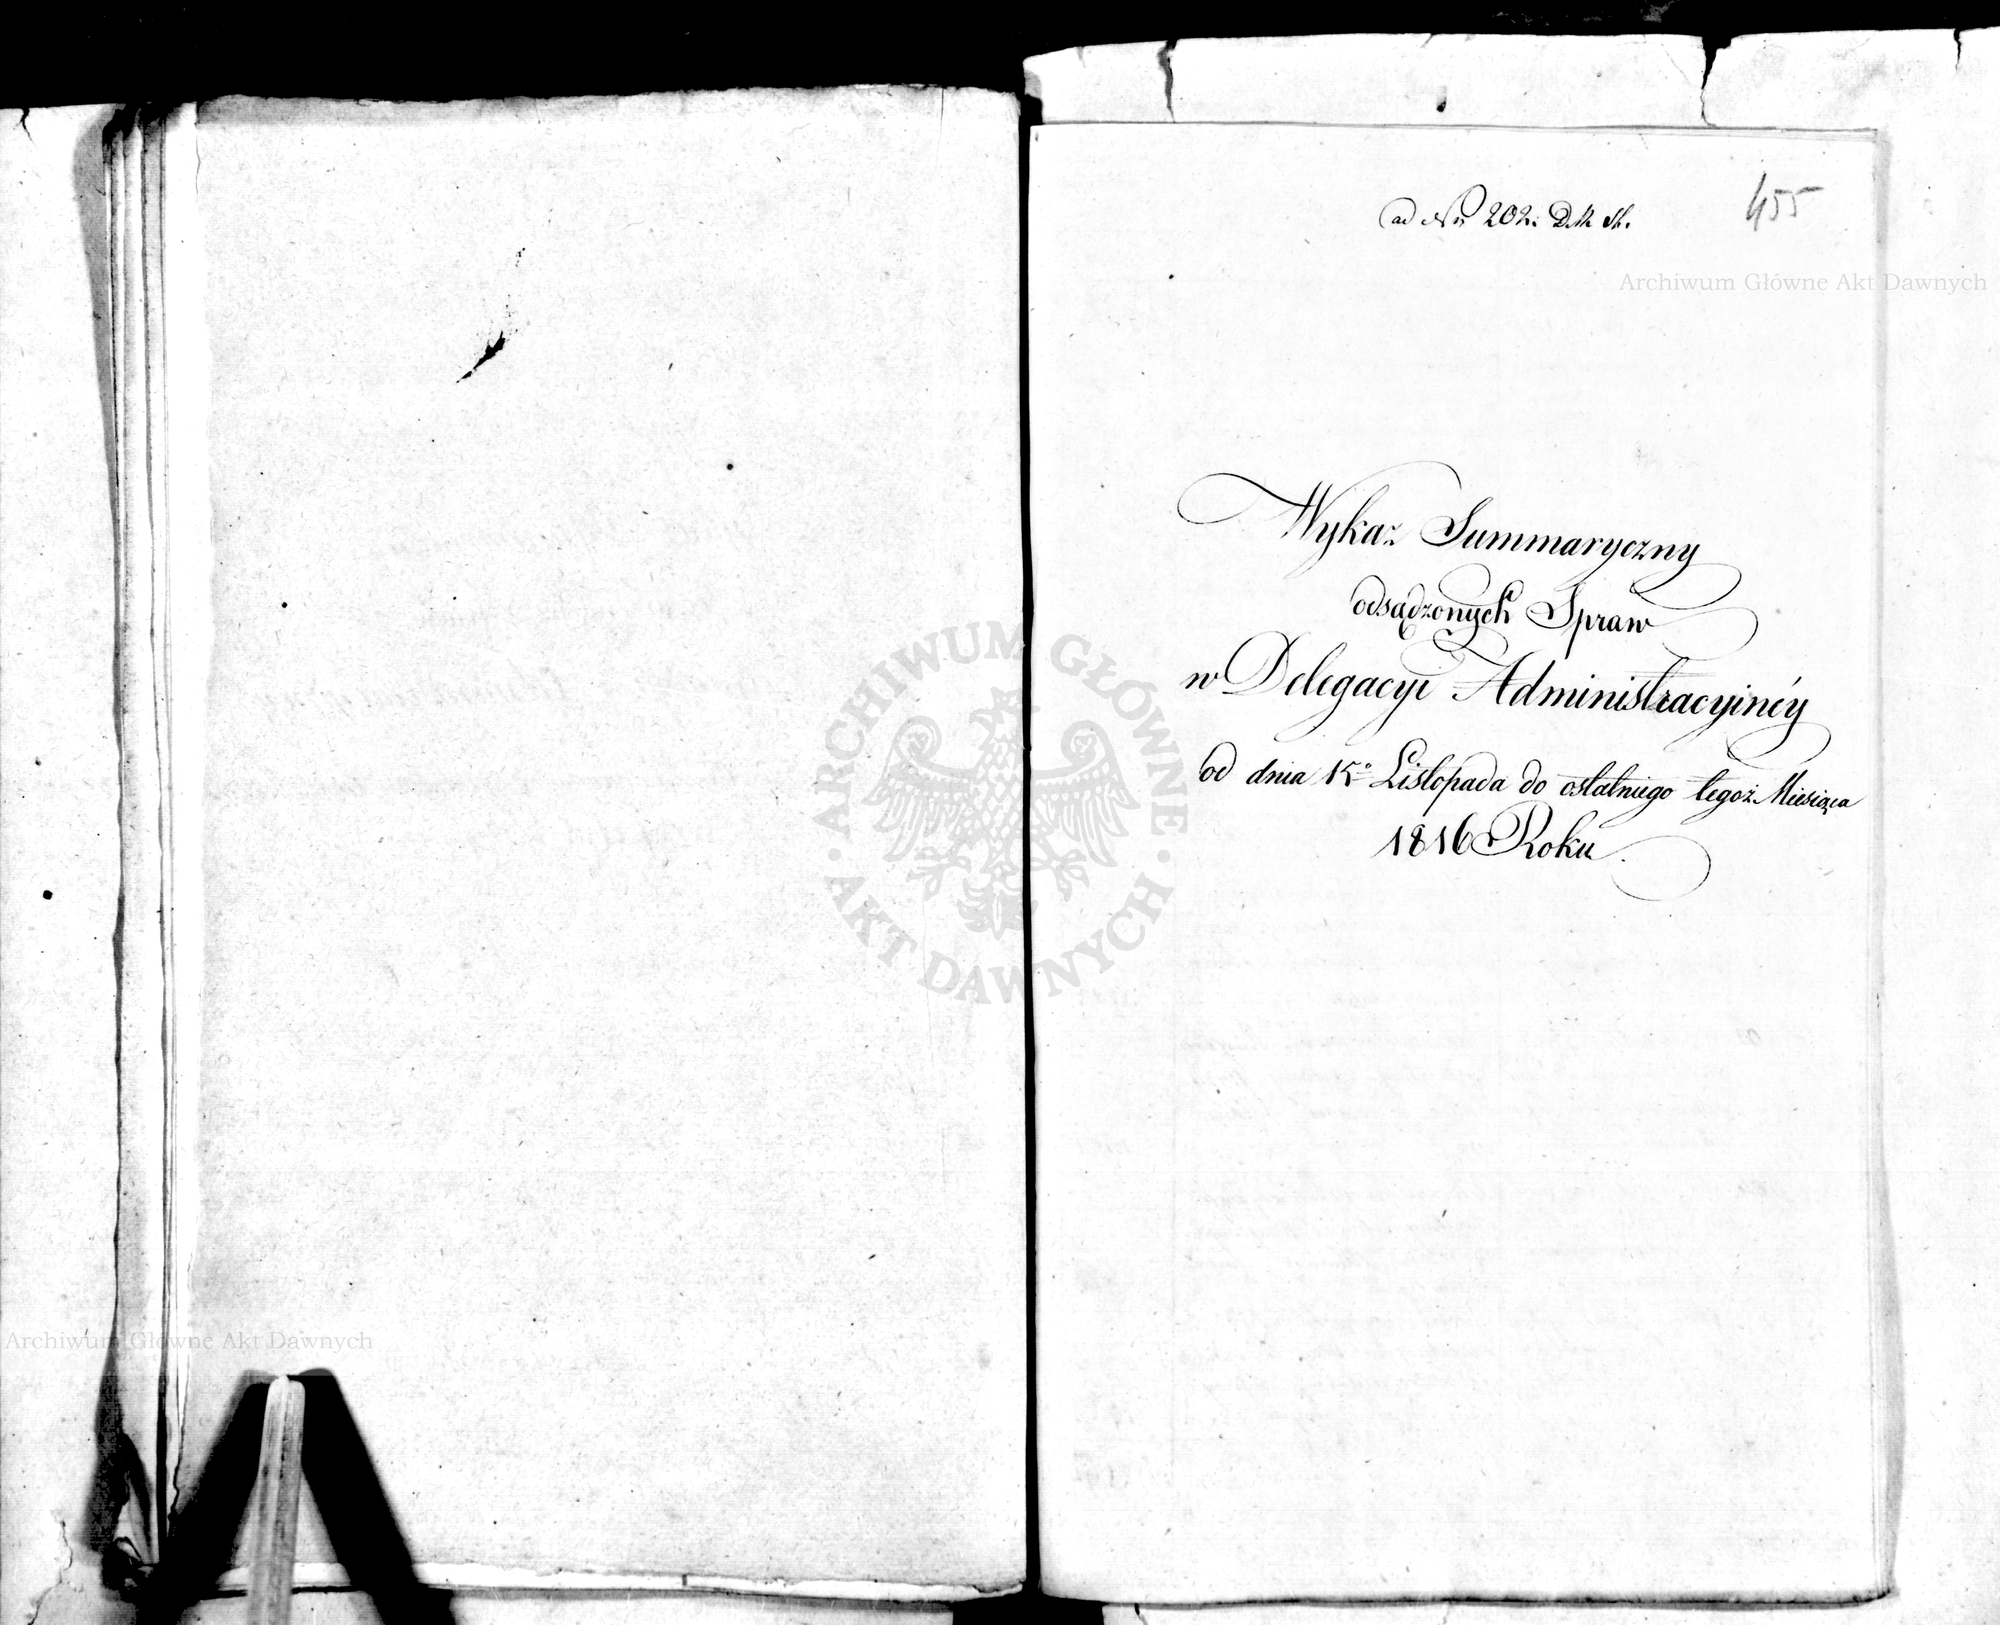 ad Nr 202.
455
Archiwum Główne Akt Dawnych
Wykaz Summaryczny
odsądzonych Spraw
w Delegacyi Administracyinéy
od dnia 15º Listopada do ostatniego tegoż Miesiąca
1816 Roku.
ARCHIWUM GŁÓWNE
· AKT DAWNYCH ·
Archiwum Główne Akt Dawnych